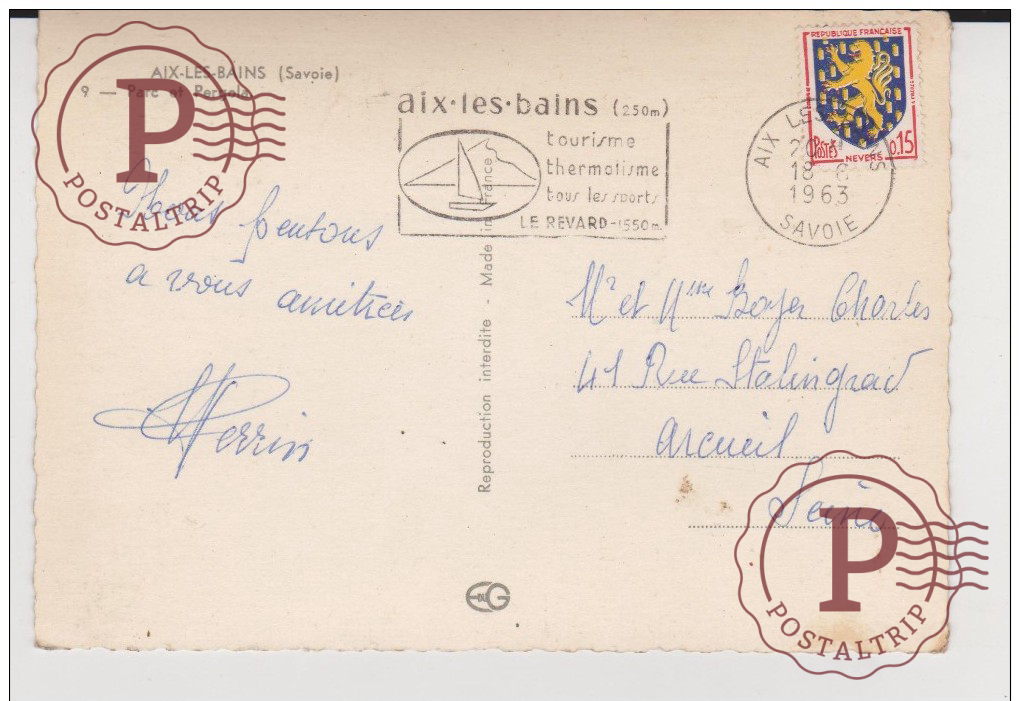 AIX-LES-BAINS (Savoie)
9 — Parc et Pergola
P
POSTALTRIP
aix·les·bains (250m)
tourisme
thermalisme
tous les sports
LE REVARD-1550m.
REPUBLIQUE FRANÇAISE
POSTES NEVERS 0,15
AIX LES BAINS
18-6
1963
SAVOIE
Nous pensons
a vous amitiées
Perrin
Reproduction interdite - Made in France
Mr et Mme Boyer Charles
41 Rue Stalingrad
Arcueil
Seine
EG
P
POSTALTRIP